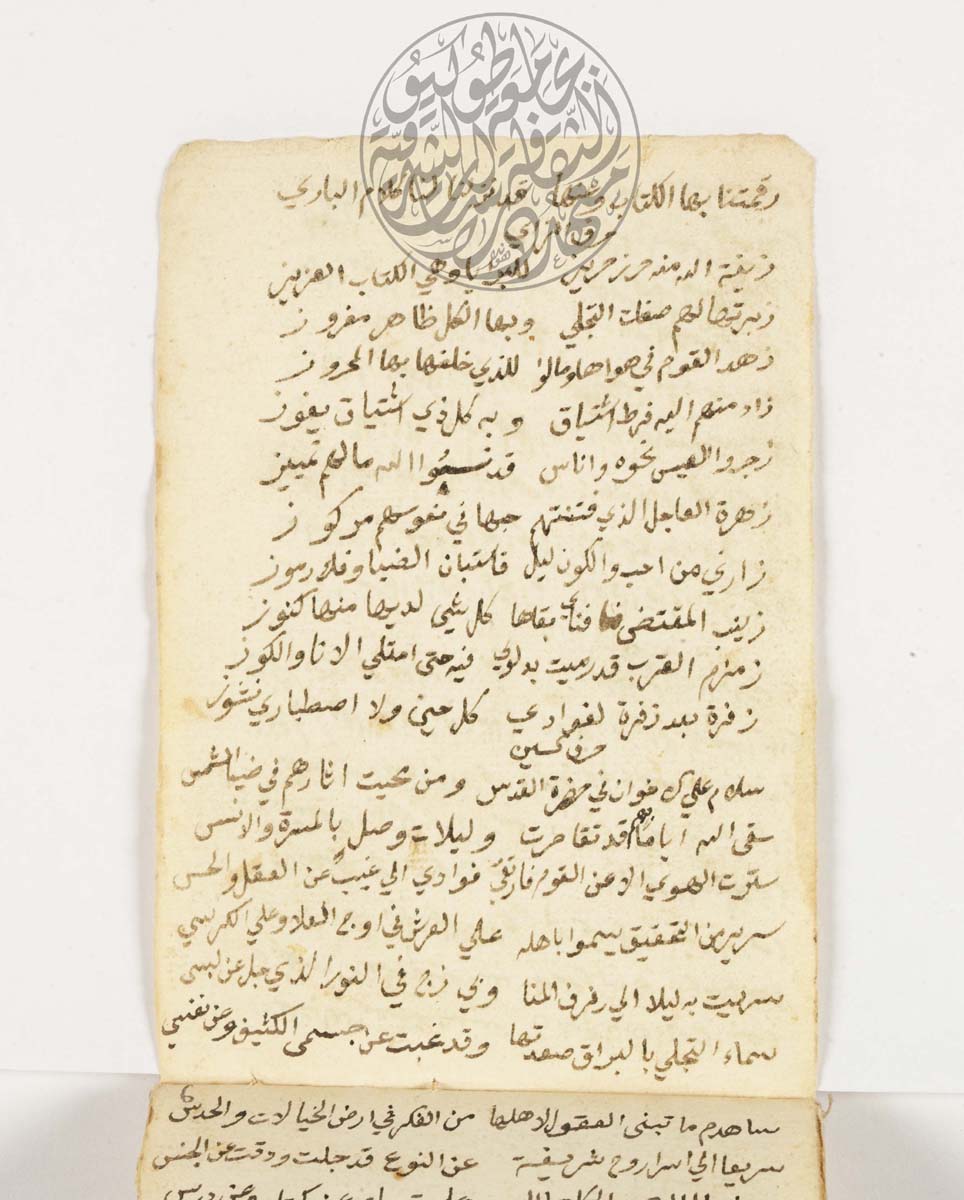 رقمتنا بها الكتاب قد لنا كلام الباري
حرف الزاي
زيفة الله منه حرز حريز للبرايا وهي الكتاب العزيز
زبرتها لهم صفات التجلي وبها الكل ظاهر مفروز
زهد القوم في هواها ومالوا للذي خلفها بها المحروز
زاد منهم اليه فرط اشتياق وبه كل ذي اشتياق يفوز
زجروا العيس نحوه واناس قد نسوا الله مالهم تمييز
زهرة العاجل الذي فتنتهم حبها في نفوسهم مركوز
زارني من احب والكون ليل فاستبان الضيا وفك رموز
زينب المقتضى فنائي بقاها كل شي لديها منها كنوز
زمزم القرب قد رميت بدلوي فيه حتى امتلي الانا والكوز
زفرة بعد زفرة لفوادي كل حين ولا اصطباري نشوز
حرف السين
سلام علي الاخوان في حضرة القدس ومن محيت اثارهم في ضيا الشمس
سقى الله اياما بهم قد تقاصرت وليلات وصل بالمسرة والانس
سترت الهوي الا عن القوم فارتقى فوادي الي غيب عن العقل والحس
سرير من التحقيق يسموا باهله علي العرش في اوج العلا وعلي الكرسي
سريت به ليلا الي رفرف المنا وبي زج في النور الذي جل عن لبس
سماء التجلي بالبراق صعدتها وقد غبت عن جسمي الكثيف وعن نفسي
ساهدم ما تبنى العقول لاهلها من الفكر في ارض الخيالات والحدس
سريعا الي اسرار روح شريفة عن النوع قد جلت ودقت عن الجنس